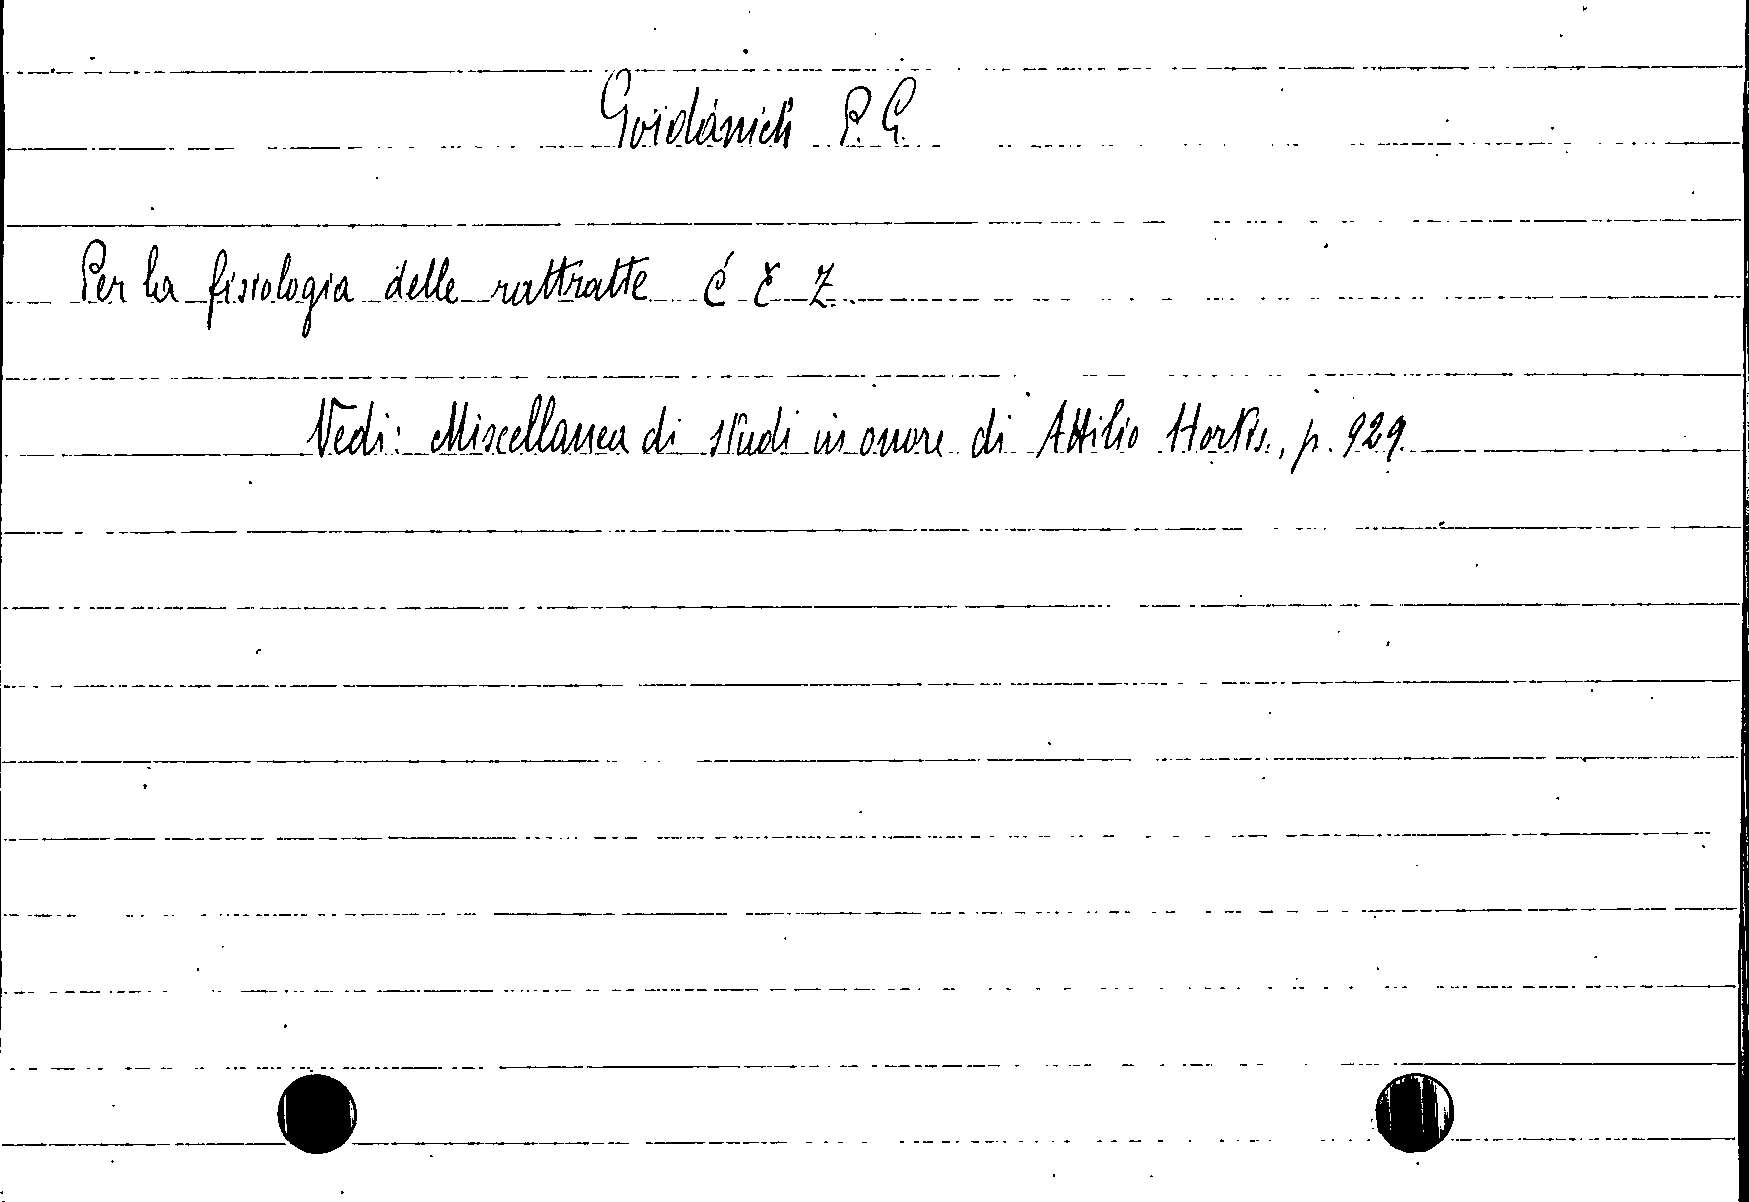 Goidànich P. G.
Per la fisiologia delle rattratte ć č z.
Vedi: Miscellanea di studi in onore di Attilio Hortis., p. 929.